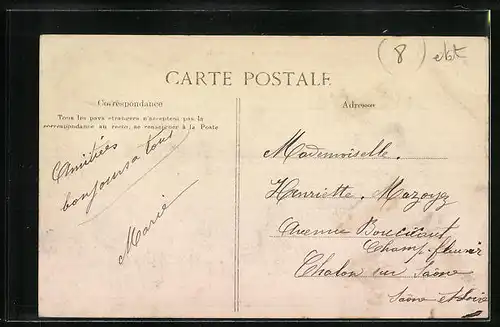 (8) ebt
CARTE POSTALE
Correspondance
Tous les pays étrangers n'acceptent pas la
correspondance au recto, se renseigner à la Poste
Amitiés
bonjours a tous
Marie
Adresse
Mademoiselle.
Henriette. Mazoyez
Avenue Boucicaut
Champ-fleurir
Chalon sur Saône
Saône et Loire